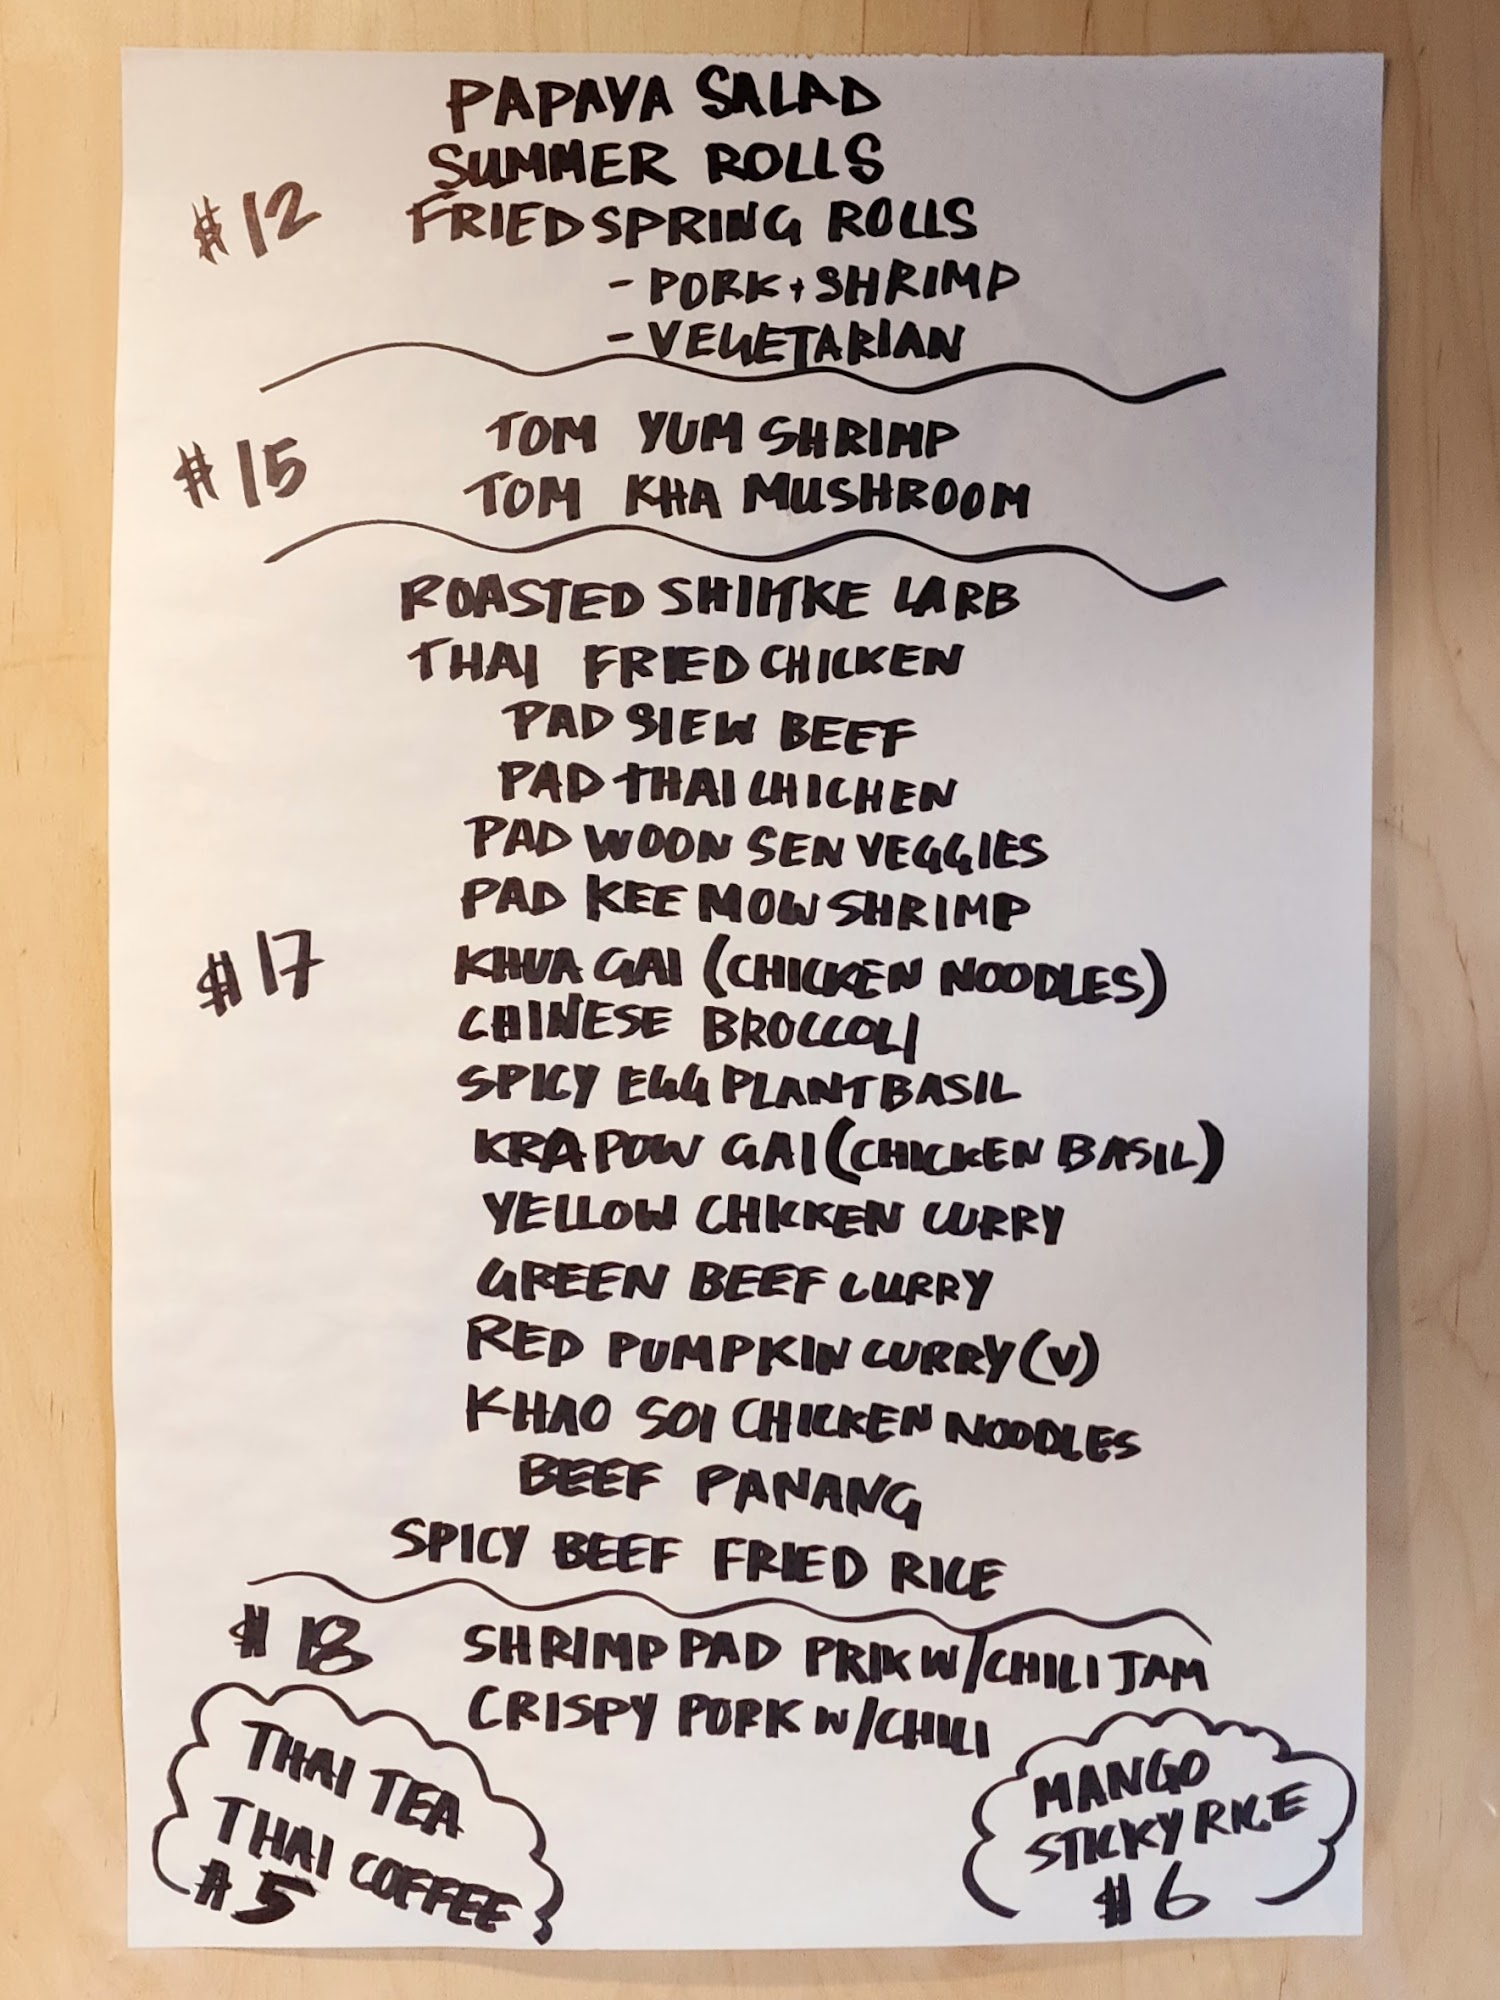 PAPAYA SALAD
SUMMER ROLLS
$12 FRIED SPRING ROLLS
- PORK + SHRIMP
- VEGETARIAN
TOM YUM SHRIMP
$15 TOM KHA MUSHROOM
ROASTED SHIITKE LARB
THAI FRIED CHICKEN
PAD SIEW BEEF
PAD THAI CHICHEN
PAD WOON SEN VEGGIES
PAD KEE MOW SHRIMP
$17 KHUA GAI (CHICKEN NOODLES)
CHINESE BROCCOLI
SPICY EGGPLANT BASIL
KRA POW GAI (CHICKEN BASIL)
YELLOW CHICKEN CURRY
GREEN BEEF CURRY
RED PUMPKIN CURRY (V)
KHAO SOI CHICKEN NOODLES
BEEF PANANG
SPICY BEEF FRIED RICE
$18 SHRIMP PAD PRIK W/CHILI JAM
CRISPY PORK W/CHILI
THAI TEA
THAI COFFEE
$5
MANGO
STICKY RICE
$6